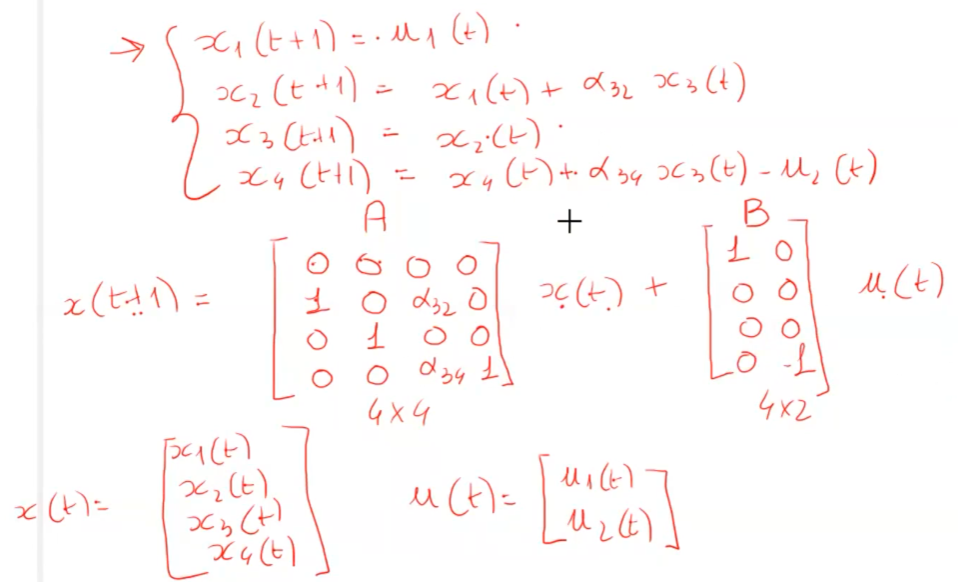 → { x₁(t+1) = u₁(t)
x₂(t+1) = x₁(t) + α₃₂ x₃(t)
x₃(t+1) = x₂(t)
x₄(t+1) = x₄(t) + α₃₄ x₃(t) - u₂(t)
A B
x(t+1) = [ 0 0 0 0 ; 1 0 α₃₂ 0 ; 0 1 0 0 ; 0 0 α₃₄ 1 ] x(t) + [ 1 0 ; 0 0 ; 0 0 ; 0 -1 ] u(t)
4x4 4x2
x(t) = [ x₁(t) ; x₂(t) ; x₃(t) ; x₄(t) ] u(t) = [ u₁(t) ; u₂(t) ]